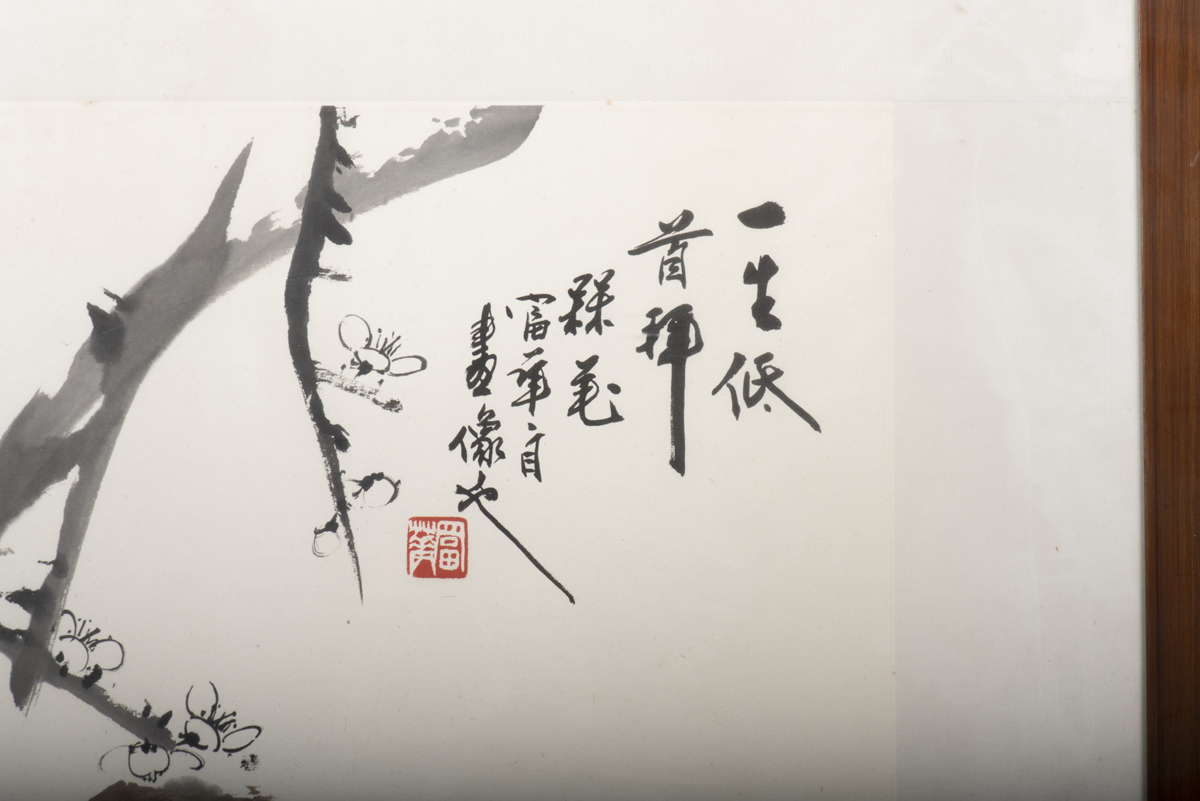 一生低
首拜
槑花
富華自
畫像也
富華